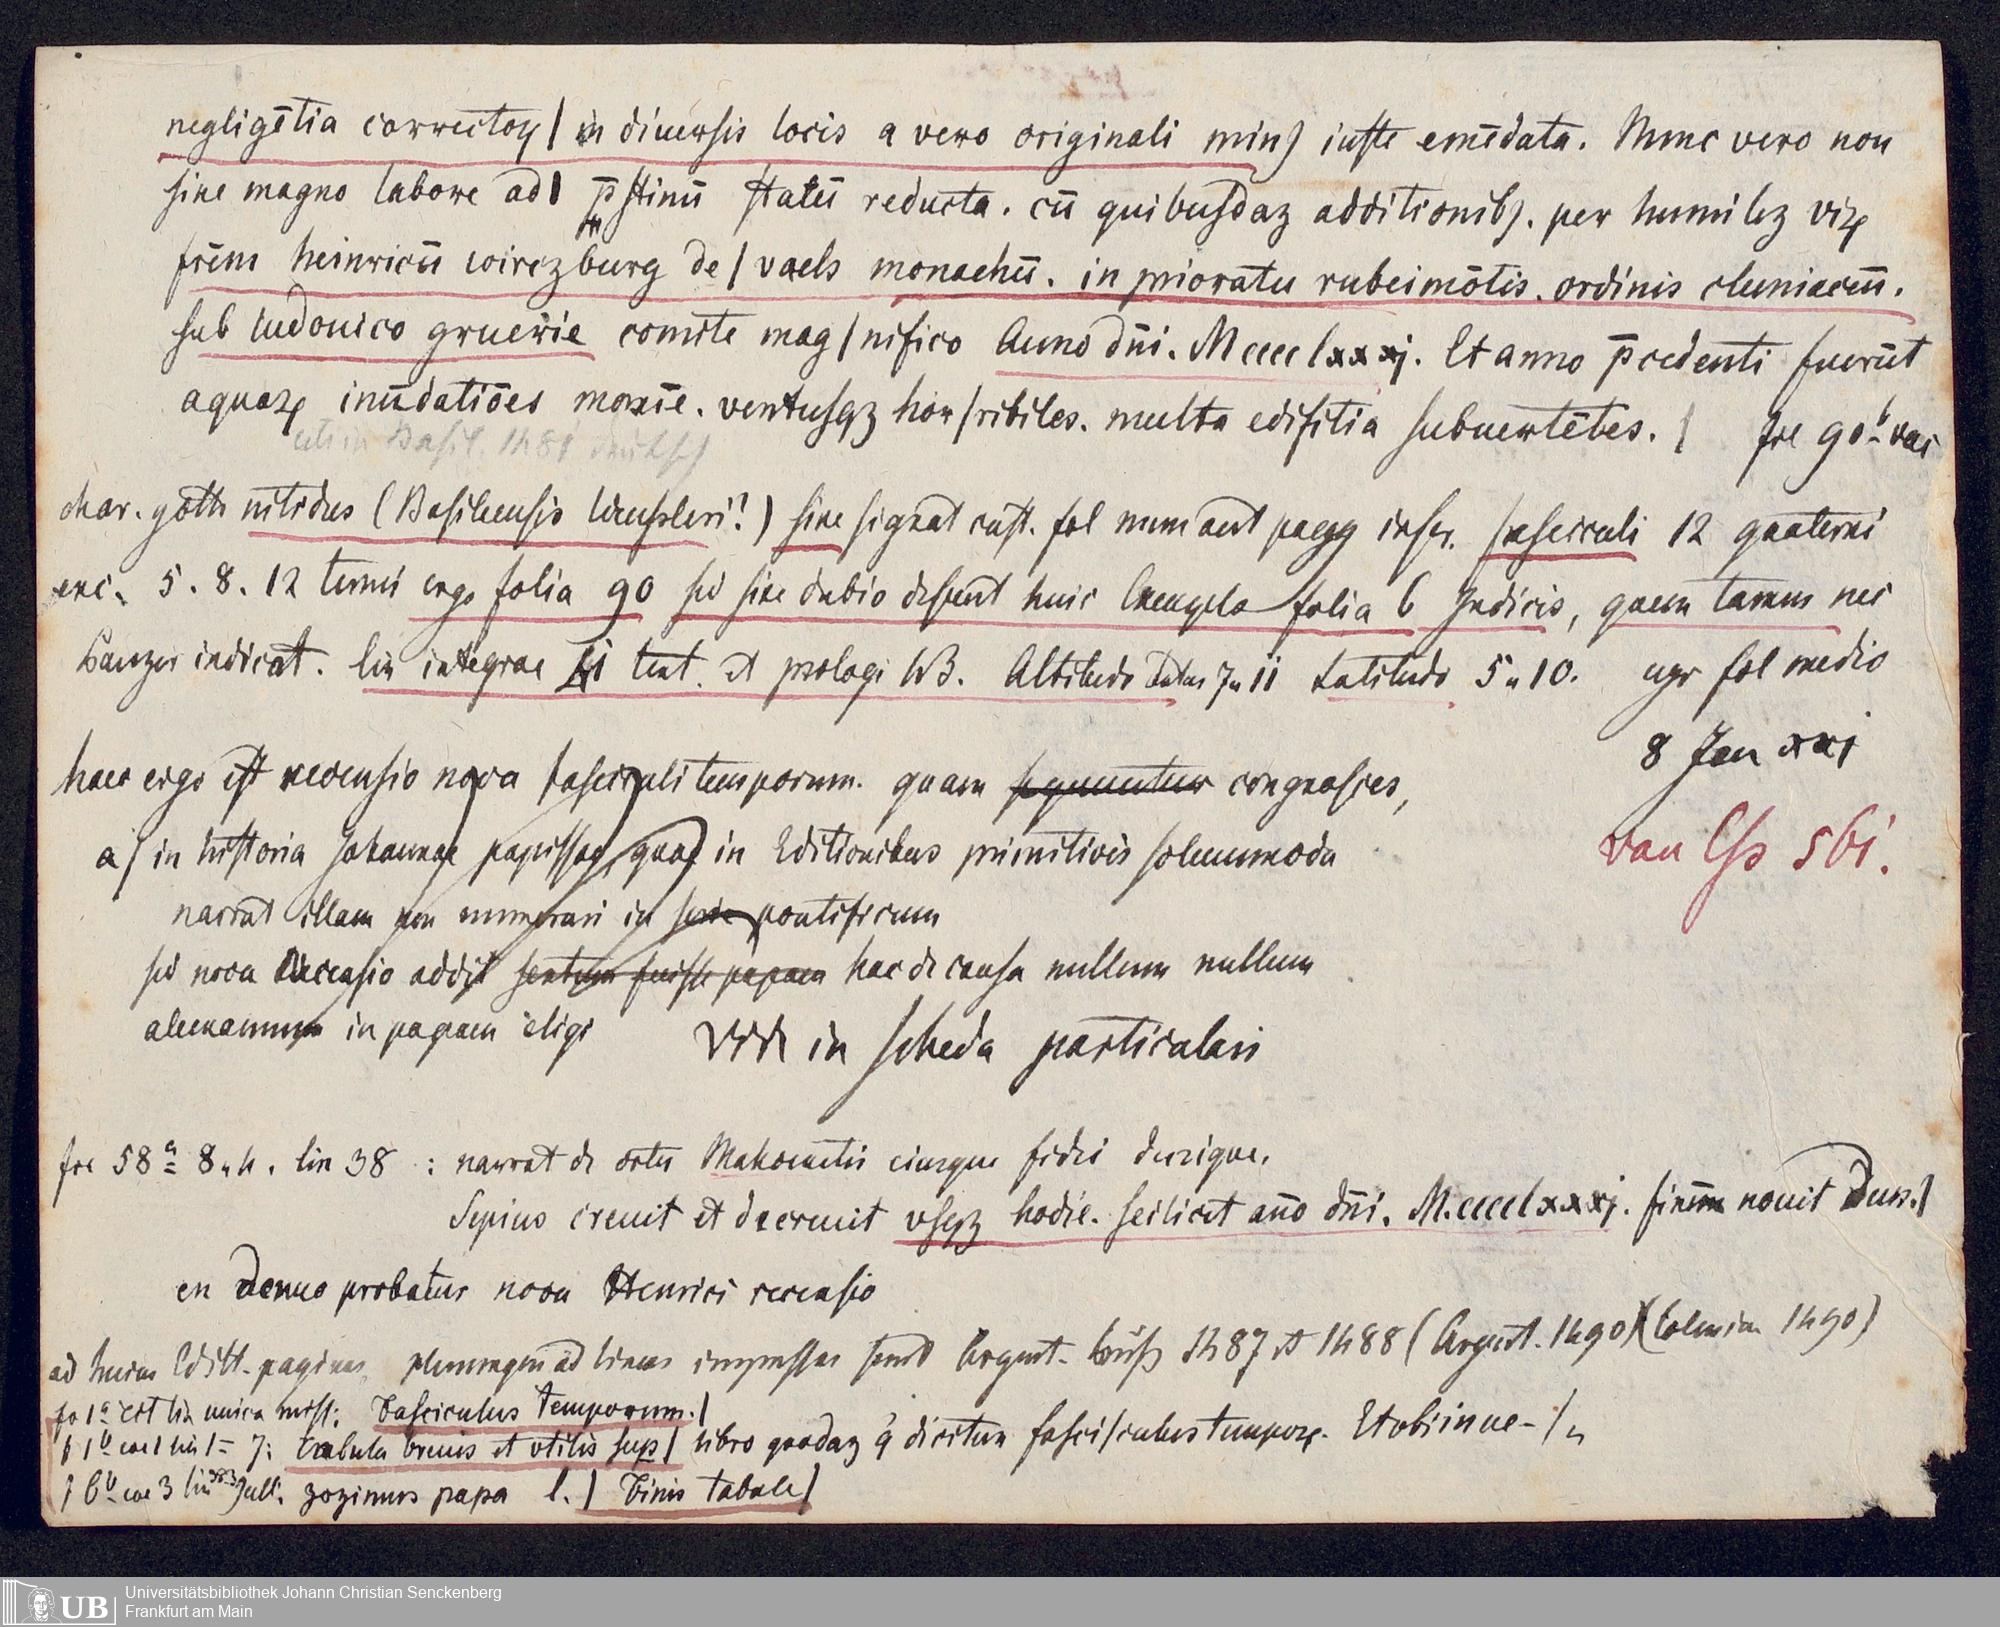 negligētia correctoꝝ / in diuersis locis a vero originali minꝰ iuste emēdata. Nunc vero non
sine magno labore ad / p̄stinū statū reducta. cū quibusdaꝫ additionibꝰ. per humileꝫ viꝝ
frēm heinricū wirczburg de / vaels monachū. in prioratu rubeimōtis. ordinis cluniaceñ.
sub ludouico gruerie comite mag / nifico Anno dñi. M cccc lxxxj. Et anno p̄cedenti fuerūt
aquaꝝ inūdatiões maxīe. ventusqꝫ hor / ribiles. multa edifitia subuertētes. /
Basil. 1481
char. goth nitidus (Basileensis Wensleri?) sine signat cust. fol num aut pagg inscr. fasciculi 12 quaterni
exc. 5. 8. 12 terni ergo folia 90 sed sine dubio desunt huic Exemplo folia 6 Indicis, quem tamen nec
Panzer indicat. lin integrae 51 text. et prologi 43. Altitudo 7 " 11 Latitudo 5 " 10. fol medio
8 Jan xxj
haec ergo est recensio nova fasciculi temporum. quam sequuntur congnosces,
van Ess 561.
a) in historia Johannae papissae, quae in Editionibus primitivis solummodo
narrat illam non numerari in serie pontificum
sed nova Recensio addit hac de causa nullum nullum
alemannum in papam eligi
Vide in scheda particulari
58ª 8 " 4. lin 38 : narrat de ortu Mahometis eiusque fidei denique.
Sepius creuit et decreuit vsqꝫ hodie. scilicet año dñi. M.cccclxxxj. finem nouit Deus. /
en denuo probatur nova Henrici recensio
ad huius Editt. paginas, plerumque ad lineas impressae sunt Argent. Prüß 1487 et 1488 (Argent. 1490) (Coloniae 1490)
fo 1ª est lin unica miss: Fasciculus temporum. /
f 1ᵇ col 1 lin 1 = 7: tabula breuis et vtilis suꝑ / libro quodaꝫ q̇ dicitur fasci / culus tempoꝝ. Et vbi inue- / "
f 6ᵇ col 3 lin zozimus papa l. / Finis tabule /
UB Universitätsbibliothek Johann Christian Senckenberg
Frankfurt am Main